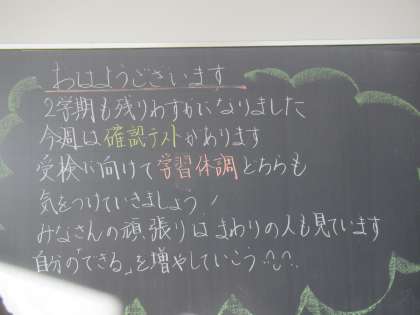 おはようございます
2学期も残りわずかになりました
今週は確認テストがあります
受検に向けて学習体調どちらも
気をつけていきましょう！
みなさんの頑張りはまわりの人も見ています
自分の「できる」を増やしていこう